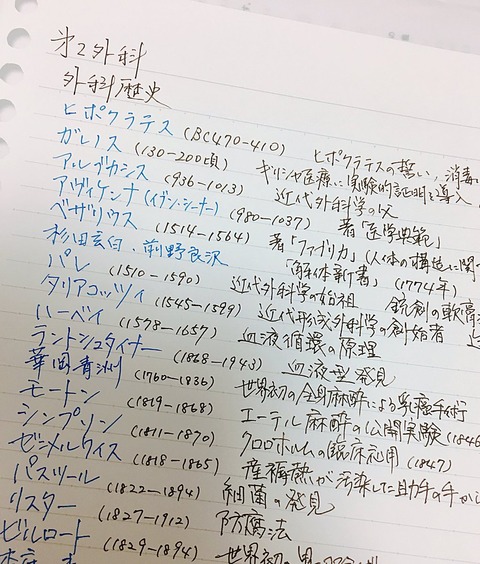 第2外科
外科歴史
ヒポクラテス (BC470-410) ヒポクラテスの誓い、消毒
ガレノス (130-200頃) ギリシャ医療に実験的証明を導入
アルブカシス (936-1013) 近代外科学の父
アヴィケンナ (イブン・シーナー) (980-1037) 著「医学典範」
ベザリウス (1514-1564) 著「ファブリカ」(人体の構造に関
杉田玄白、前野良沢 「解体新書」 (1774年)
パレ (1510-1590) 近代外科学の始祖 銃創の軟膏
タリアコッツィ (1545-1599) 近代形成外科学の創始者
ハーベイ (1578-1657) 血液循環の原理
ラントシュタイナー (1868-1943) 血液型発見
華岡青洲 (1760-1836) 世界初の全身麻酔による乳癌手術
モートン (1819-1868) エーテル麻酔の公開実験 (1846
シンプソン (1811-1870) クロロホルムの臨床応用 (1847)
ゼンメルワイス (1818-1865) 産褥熱が汚染した助手の手から
パスツール (1822-1894) 細菌の発見
リスター (1827-1912) 防腐法
ビルロート (1829-1894) 世界初の胃